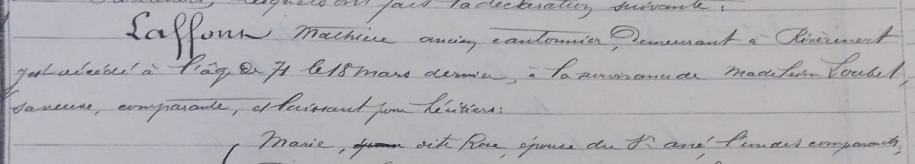 lesquels ont fait la déclaration suivante:
Laffont Mathieu ancien cantonnier, Demeurant à Rivèrenert
y est décédé à l'âge de 71 le 18 mars dernier, à la survivance de Madeleine Loubet,
sa veuve, comparante, et laissant pour héritiers:
Marie, dite Rose, épouse du Sr ané, l'un des comparants,